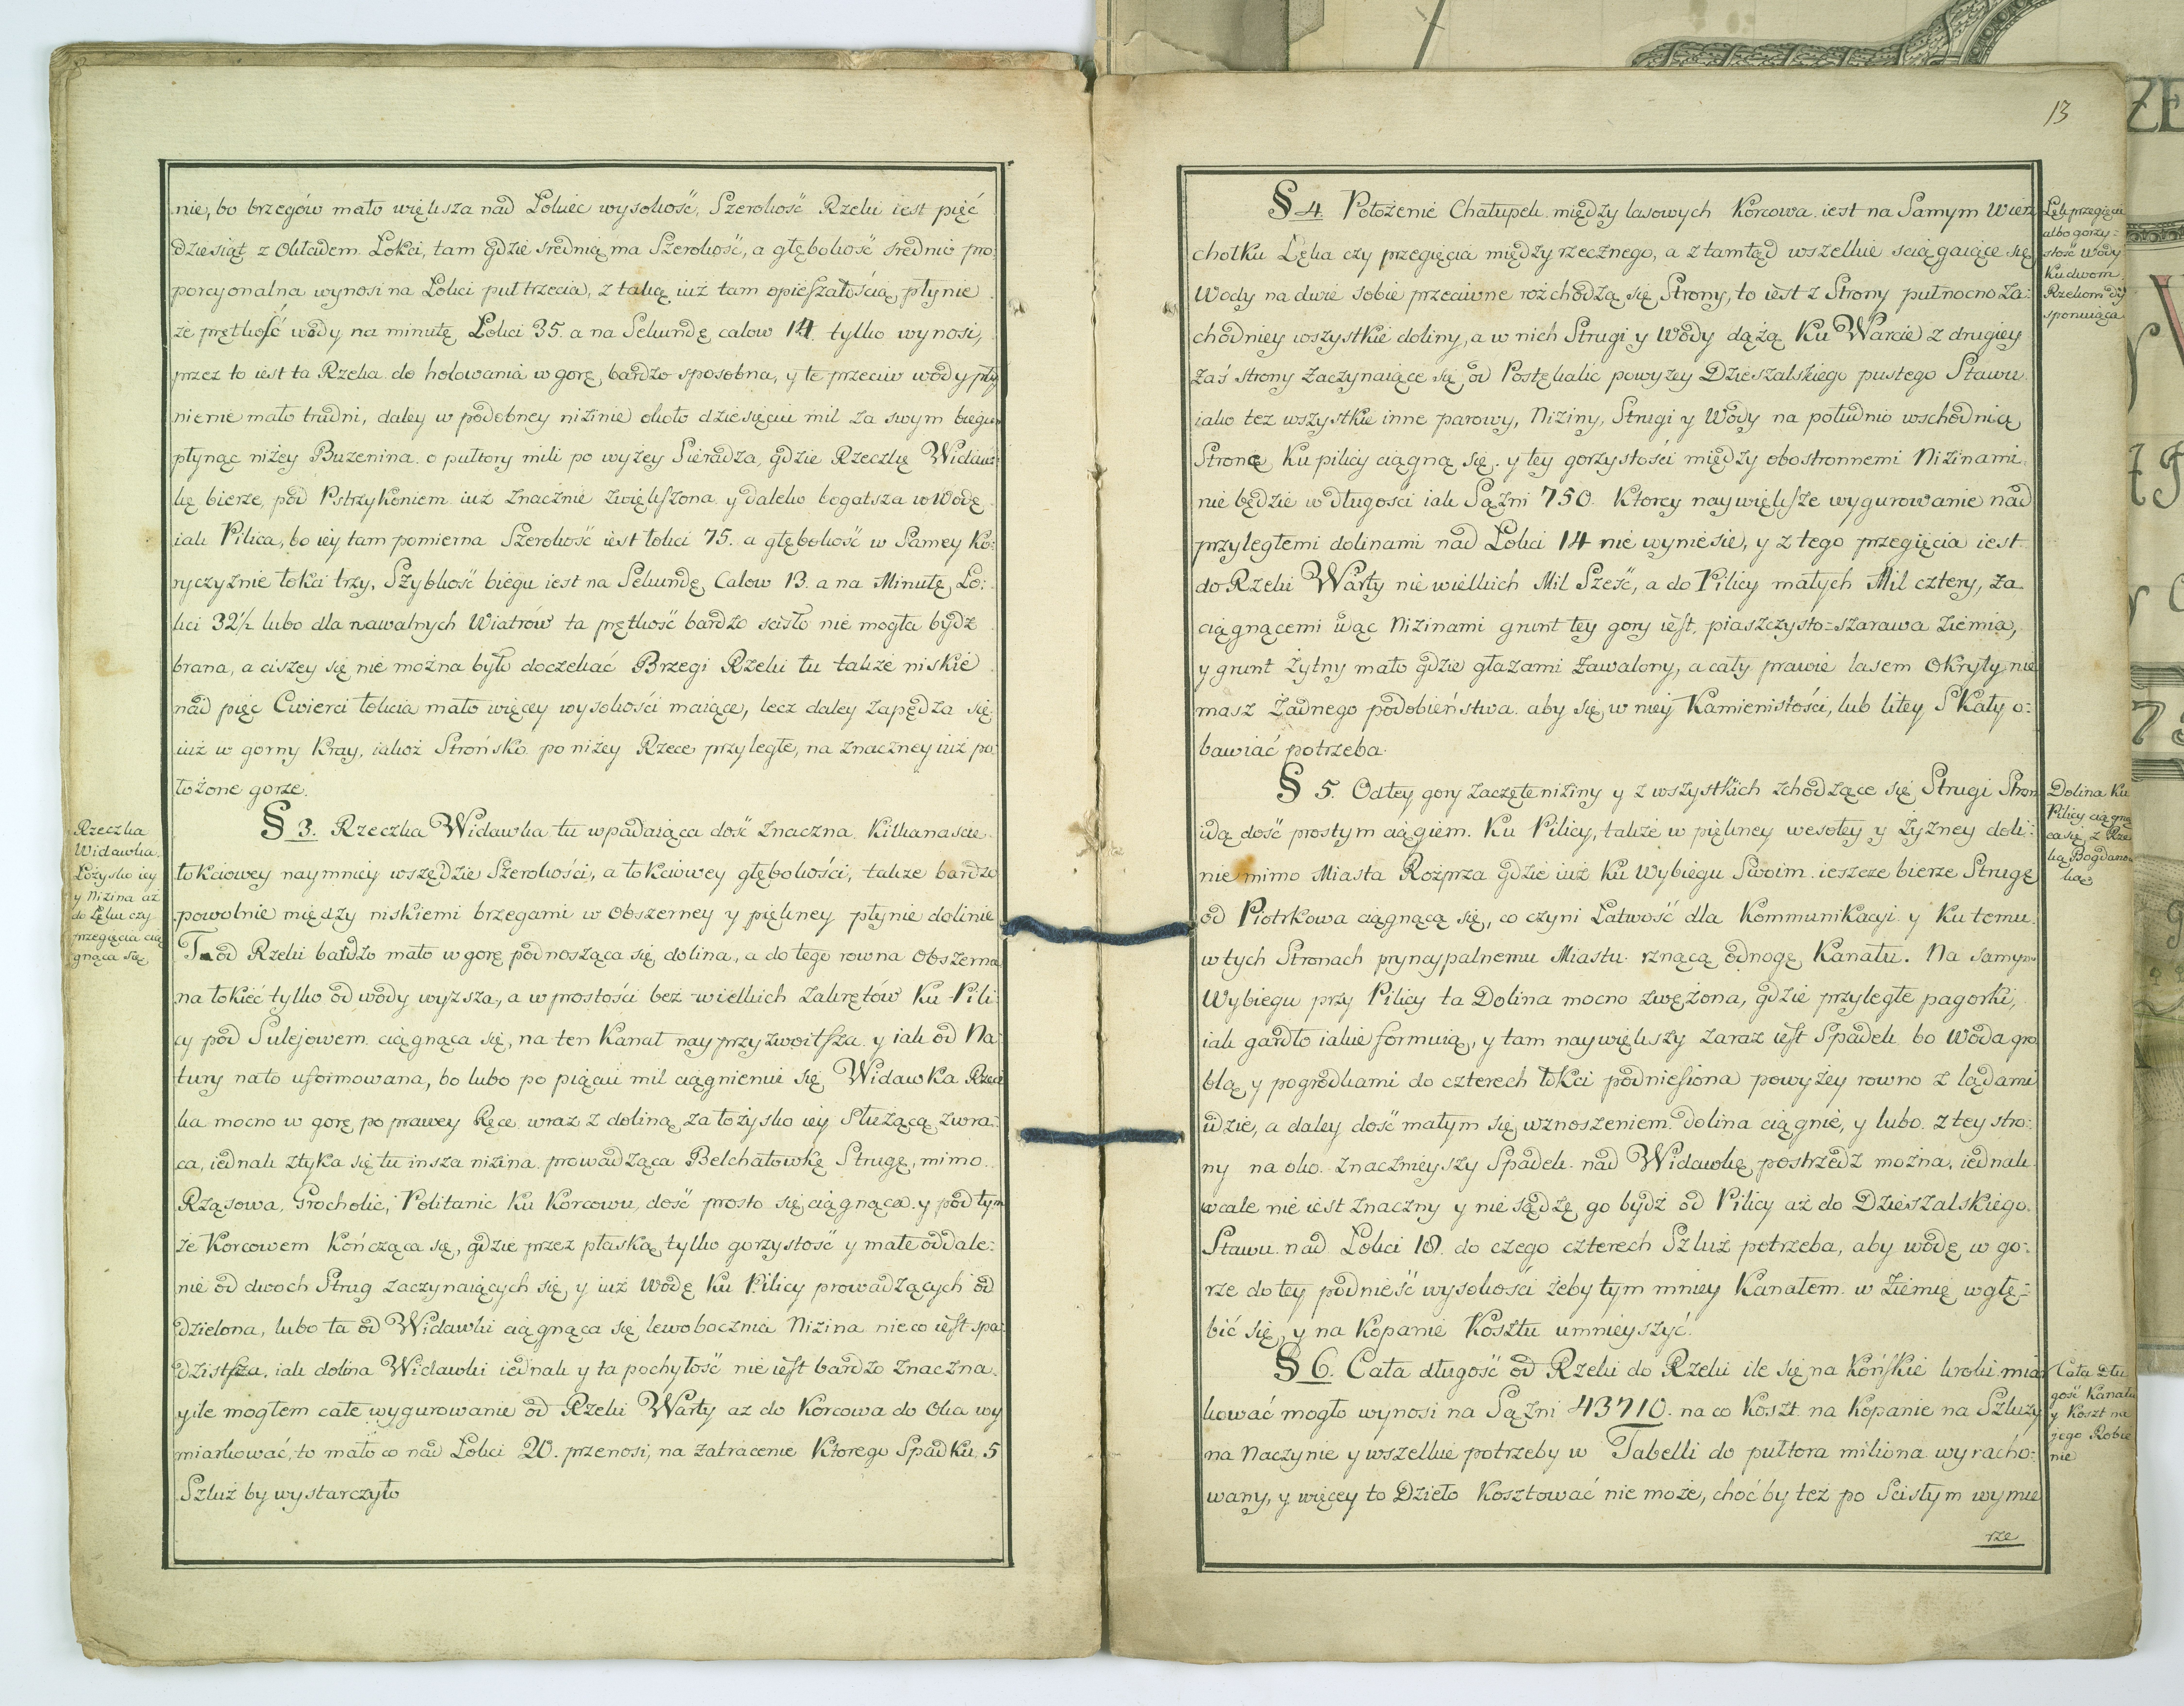 nie, bo brzegów mało większa nad Łokieć wysokość, Szerokość Rzeki iest pięć
dziesiąt z Okładem Łokci, tam gdzie srednią ma Szerokość, a głębokość srednio pro:
porcyonalna wynosi na Łokci puł trzecia, z taką iuż tam opieszałością płynie
że prętkość wody na minutę Łokci 35. a na Sekundę calow 14. tylko wynosi,
przez to iest ta Rzeka do holowania w gorę, bardzo sposobna, y te przeciw wody pły
nienie mało trudni, daley w podobney nizinie około dziesięciu mil za swym biegiem
płynąc niżey Buzenina o pułtory mili po wyżey Sieradza, gdzie Rzeczkę Widaw:
kę bierze, pod Pstrzykoniem iuż znacznie zwiększona y daleko bogatsza w Wodę
iak Pilica, bo iey tam pomierna Szerokość iest łokci 75. a głębokość w Samey Ko:
ryczyznie łokci trzy, Szybkość biegu iest na Sekundę Calow 13. a na Minutę Ło:
kci 32½ lubo dla nawalnych Wiatrów ta prętkość bardzo scisło nie mogła bydź
brana, a ciszey się nie można było doczekać Brzegi Rzeki tu także niskie
nad pięc Cwierci łokcia mało więcey wysokości maiące, lecz daley zapędza się
iuż w gorny Kray, iakoż Strońsko po niżey Rzece przyległe, na znaczney iuż po
łożone gorze.
Rzeczka
Widawka.
Łożysko iey
y Nizina aż
do Lęku czy
przegięcia cią
gnąca się
§ 3. Rzeczka Widawka tu wpadaiąca dość znaczna Kilkanaście
łokciowey naymniey wszędzie Szerokości, a łokciowey głębokości, także bardzo
powolnie między niskiemi brzegami w Obszerney y piękney płynie dolinie
T od Rzeki bardzo mało w gorę podnosząca się dolina, a do tego rowna Obszerna
na łokieć tylko od wody wyższa, a w prostości bez wielkich Zakrętów Ku Pili:
cy pod Sulejowem ciągnąca się, na ten Kanał nayprzyzwoitsza y iak od Na:
tury nato uformowana, bo lubo po piąciu mil ciągnienie się Widawka Rzecz
ka mocno w gorę po prawey Ręce wraz z doliną za łożysko iey Służącą zwra:
ca, iednak ztyka się tu insza nizina prowadząca Bełchatowkę Strugę, mimo
Rząsowa, Grocholic, Politanic Ku Korcowu, dość prosto się ciągnąca y pod tym
że Korcowem Kończąca się, gdzie przez płaską tylko gorzystość y małe oddale:
nie od dwoch Strug zaczynaiących się y iuż Wodę Ku Pilicy prowadzących od
dzielona, lubo ta od Widawki ciągnąca się lewoboczna Nizina nieco iest spa:
dzistsza, iak dolina Widawki iednak y ta pochyłość nie iest bardzo znaczna
y ile mogłem całe wygurowanie od Rzeki Warty az do Korcowa do Oka wy
miarkować, to mało co nad Łokci 20. przenosi, na zatracenie Ktorego Spadku 5
Szluz by wystarczyło
13
§ 4. Położenie Chałupek między lasowych Korcowa iest na Samym Wierz
chołku Lęku czy przegięcia między rzecznego, a z tamtąd wszelkie sciągaiące się
Wody na dwie sobie przeciwne rozchodzą się Strony, to iest z Strony pułnocno za:
chodniey wszystkie doliny, a w nich Strugi y Wody dążą Ku Warcie z drugiey
zaś strony zaczynaiące się od Postękalic powyżey Dzieszalskiego pustego Stawu
iako też wszystkie inne parowy, Niziny, Strugi y Wody na południo wschodnią
Stronę Ku pilicy ciągną się. y tey gorzystości między obostronnemi Nizinami
nie będzie w długosci iak Sążni 750. Ktorey naywiększe wygurowanie nad
przyległemi dolinami nad Łokci 14 nie wyniesie, y z tego przegięcia iest
do Rzeki Warty nie wielkich Mil Sześć, a do Pilicy małych Mil cztery, za
ciągnącemi wąc Nizinami grunt tey gory iest, piaszczysto=szarawa Ziemia,
y grunt żytny mało gdzie głazami zawalony, a cały prawie lasem Okryty nie
masz żadnego podobieństwa aby się w niey Kamienistości, lub litey Skały o:
bawiać potrzeba.
Lęk przegięcie
albo gorzy=
stość Wody
Ku dwom
Rzekom dy
sponuiąca
§ 5. Od tey gory zaczęte niziny y z wszystkich schodzące się Strugi Stron
idą dość prostym ciągiem Ku Pilicy, także w piękney wesołey y żyzney doli:
nie mimo Miasta Rozprza gdzie iuż Ku Wybiegu Swoim ieszcze bierze Strugę
od Piotrkowa ciągnącą się, co czyni Łatwość dla Kommunikacyi y Ku temu
w tych Stronach pryncypalnemu Miastu rznącą odnogę Kanału. Na samym
Wybiegu przy Pilicy ta Dolina mocno zwężona, gdzie przyległe pagorki,
iak gardło iakie formuią, y tam naywiększy zaraz iest Spadek bo Woda gro
blą y pogrodkami do czterech łokci podniesiona powyżey rowno z lądami
idzie, a daley dość małym się wznoszeniem dolina ciągnie, y lubo z tey stro:
ny na oko znacznieyszy Spadek nad Widawkę postrzedz można, iednak
wcale nie iest znaczny y nie sądzę go bydź od Pilicy aż do Dzieszalskiego
Stawu nad Łokci 18. do czego czterech Szluż potrzeba, aby wodę w go:
rze do tey podnieść wysokości żeby tym mniey Kanałem w Ziemię wgłę=
bić się, y na Kopanie Kosztu umnieyszyć.
Dolina Ku
Pilicy ciągną
ca się, z Rze
ką Bogdano
§ 6. Cała długość od Rzeki do Rzeki ile się na Końskie kroki miar
kować mogło wynosi na Sążni 43710. na co Koszt na Kopanie na Szluzy
na Naczynie y wszelkie potrzeby w Tabelli do pułtora miliona wyracho:
wany, y więcey to Dzieło Kosztować nie może, choć by też po Scisłym wymie
rze
Cała Dłu
gość Kanału
y Koszt na
jego Robie
nie